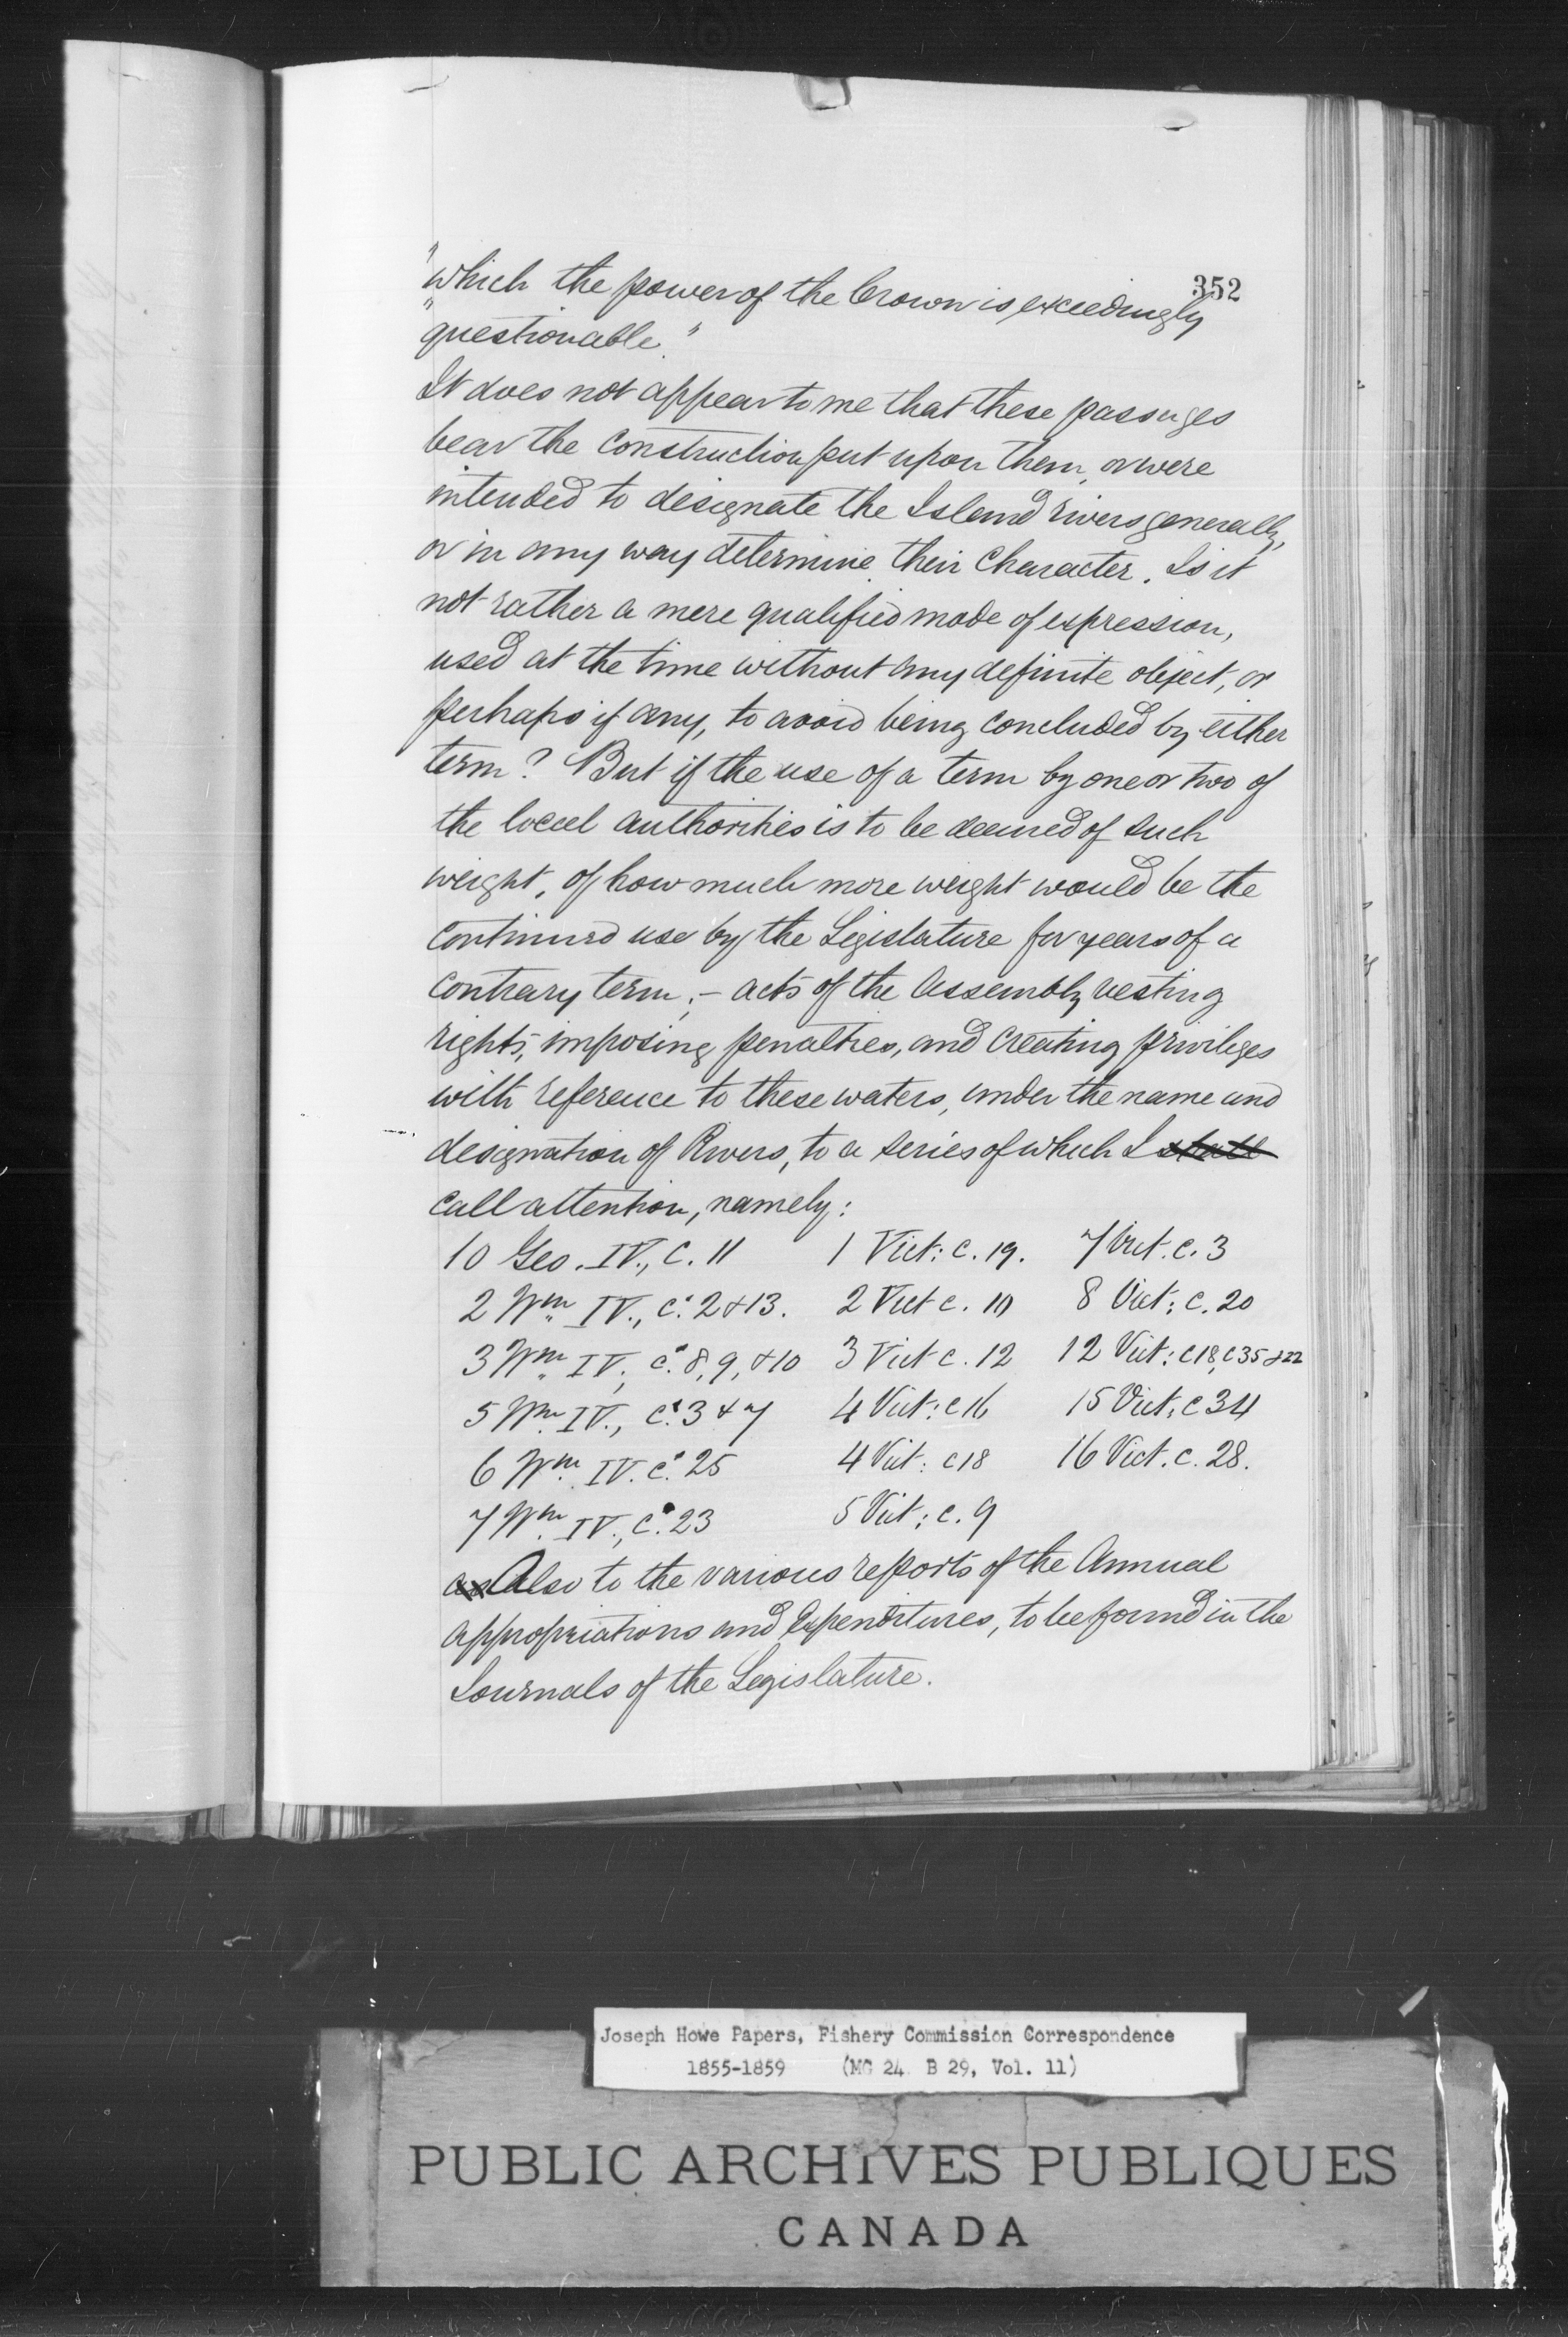 352
"which the power of the Crown is exceedingly
"questionable."
It does not appear to me that these passages
bear the construction put upon them, or were
intended to designate the Island rivers generally,
or in any way determine their character. Is it
not rather a mere qualified mode of expression,
used at the time without any definite object, or
perhaps if any, to avoid being concluded by either
term? But if the use of a term by one or two of
the local authorities is to be deemed of such
weight, of how much more weight would be the
continued use by the Legislature for years of a
contrary term;- acts of the Assembly vesting
rights, imposing penalties, and creating privileges
with reference to these waters, under the name and
designation of Rivers, to a series of which I shall
call attention, namely:
10 Geo. IV., C. 11 1 Vict: c. 19. 7 Vict. c. 3
2 Wm IV., c. 2 & 13. 2 Vict c. 10 8 Vict: c. 20
3 Wm IV., c. 8, 9, & 10 3 Vict c. 12 12 Vict: c18, c35 & 22
5 Wm. IV., c. 3 & 7 4 Vict: c16 15 Vict: c 34
6 Wm. IV. c. 25 4 Vict: c18 16 Vict. c. 28.
7 Wm. IV., c. 23 5 Vict: c. 9
as Also to the various reports of the Annual
appropriations and Expenditures, to be found in the
Journals of the Legislature.
Joseph Howe Papers, Fishery Commission Correspondence
1855-1859 (MG 24 B 29, Vol. 11)
PUBLIC ARCHIVES PUBLIQUES
CANADA